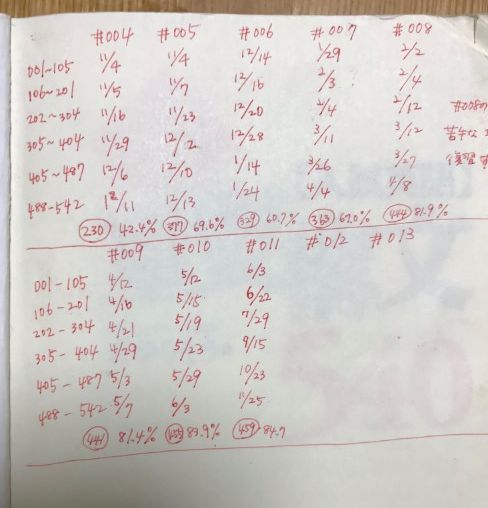 #004 #005 #006 #007 #008
001~105 11/4 11/4 12/14 1/29 2/2
106~201 11/5 11/7 12/16 2/3 2/4
202~304 11/16 11/23 12/20 2/4 2/12 #008の
305~404 11/29 12/2 12/28 3/11 3/12 苦手な
405~487 12/6 12/10 1/14 3/26 3/27 復習す
488-542 12/11 12/13 1/24 4/4 4/8
230 42.4% 377 69.6% 329 60.7% 363 67.0% 444 81.9%
#009 #010 #011 #012 #013
001-105 4/12 5/12 6/3
106-201 4/16 5/15 6/22
202-304 4/21 5/19 7/29
305-404 4/29 5/23 9/15
405-487 5/3 5/29 10/23
488-542 5/7 6/3 11/25
441 81.4% 455 83.9% 459 84.7